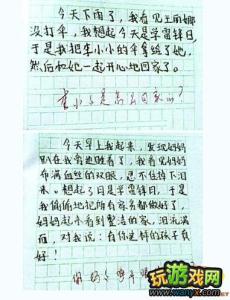 今天下雨了,我看见王丽娜
没打伞,我想起今天是学雷锋日,
于是我把李小小的伞拿给了她,
然后和她一起开心地回家了。
李小小是怎么回家的?
今天早上我起来,发现妈妈
趴在我旁边睡着了,我看见妈妈
布满血丝的双眼,忍不住掉下
泪来。想起了今日是学雷锋日,于是
我偷偷地把所有家务都做好了,
妈妈起来看到整洁的家,泪流满
面,对我说:有你这样的孩子真
好!
玩游戏网
www.wanyx.com